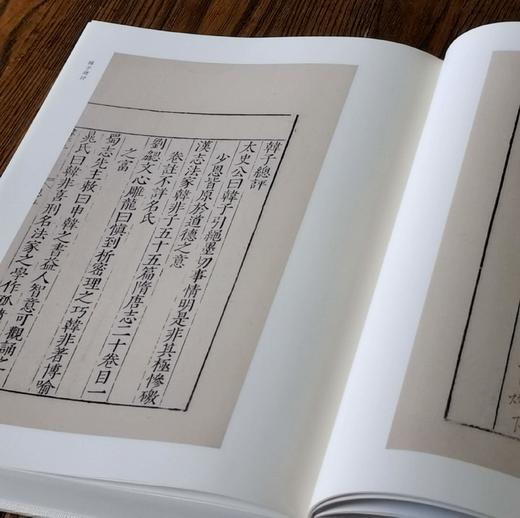 韓子總評
太史公曰韓子引繩墨切事情明是非其極慘礉
少恩皆原於道德之意
漢志法家韓非子五十五篇隋唐志二十卷目一
卷註不詳名氏
劉勰文心雕龍曰慎到析密理之巧韓非著博喻
之富
蜀志先主敕曰申韓之書益人智意可觀誦之
晁氏曰韓非喜刑名法家之學作孤